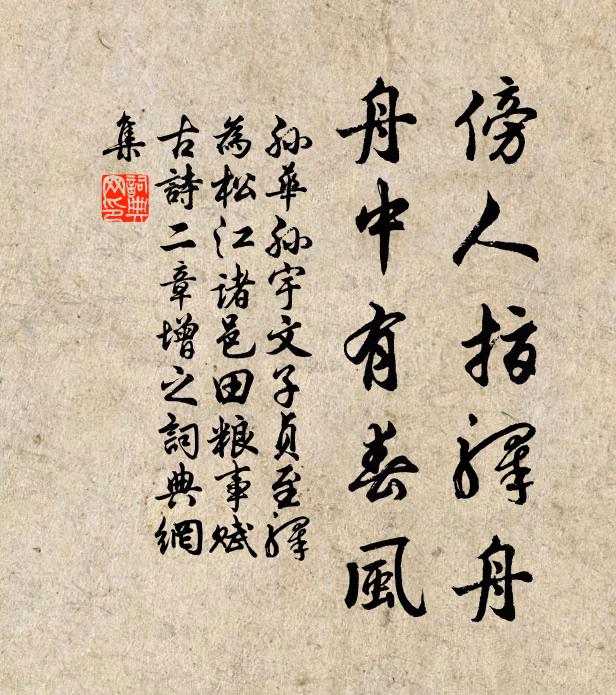 傍人指驛舟
舟中有春風
孫華孫宇文子貞至驛
為松江諸邑田粮事賦
古詩二章增之詞典網
集
詞典网印